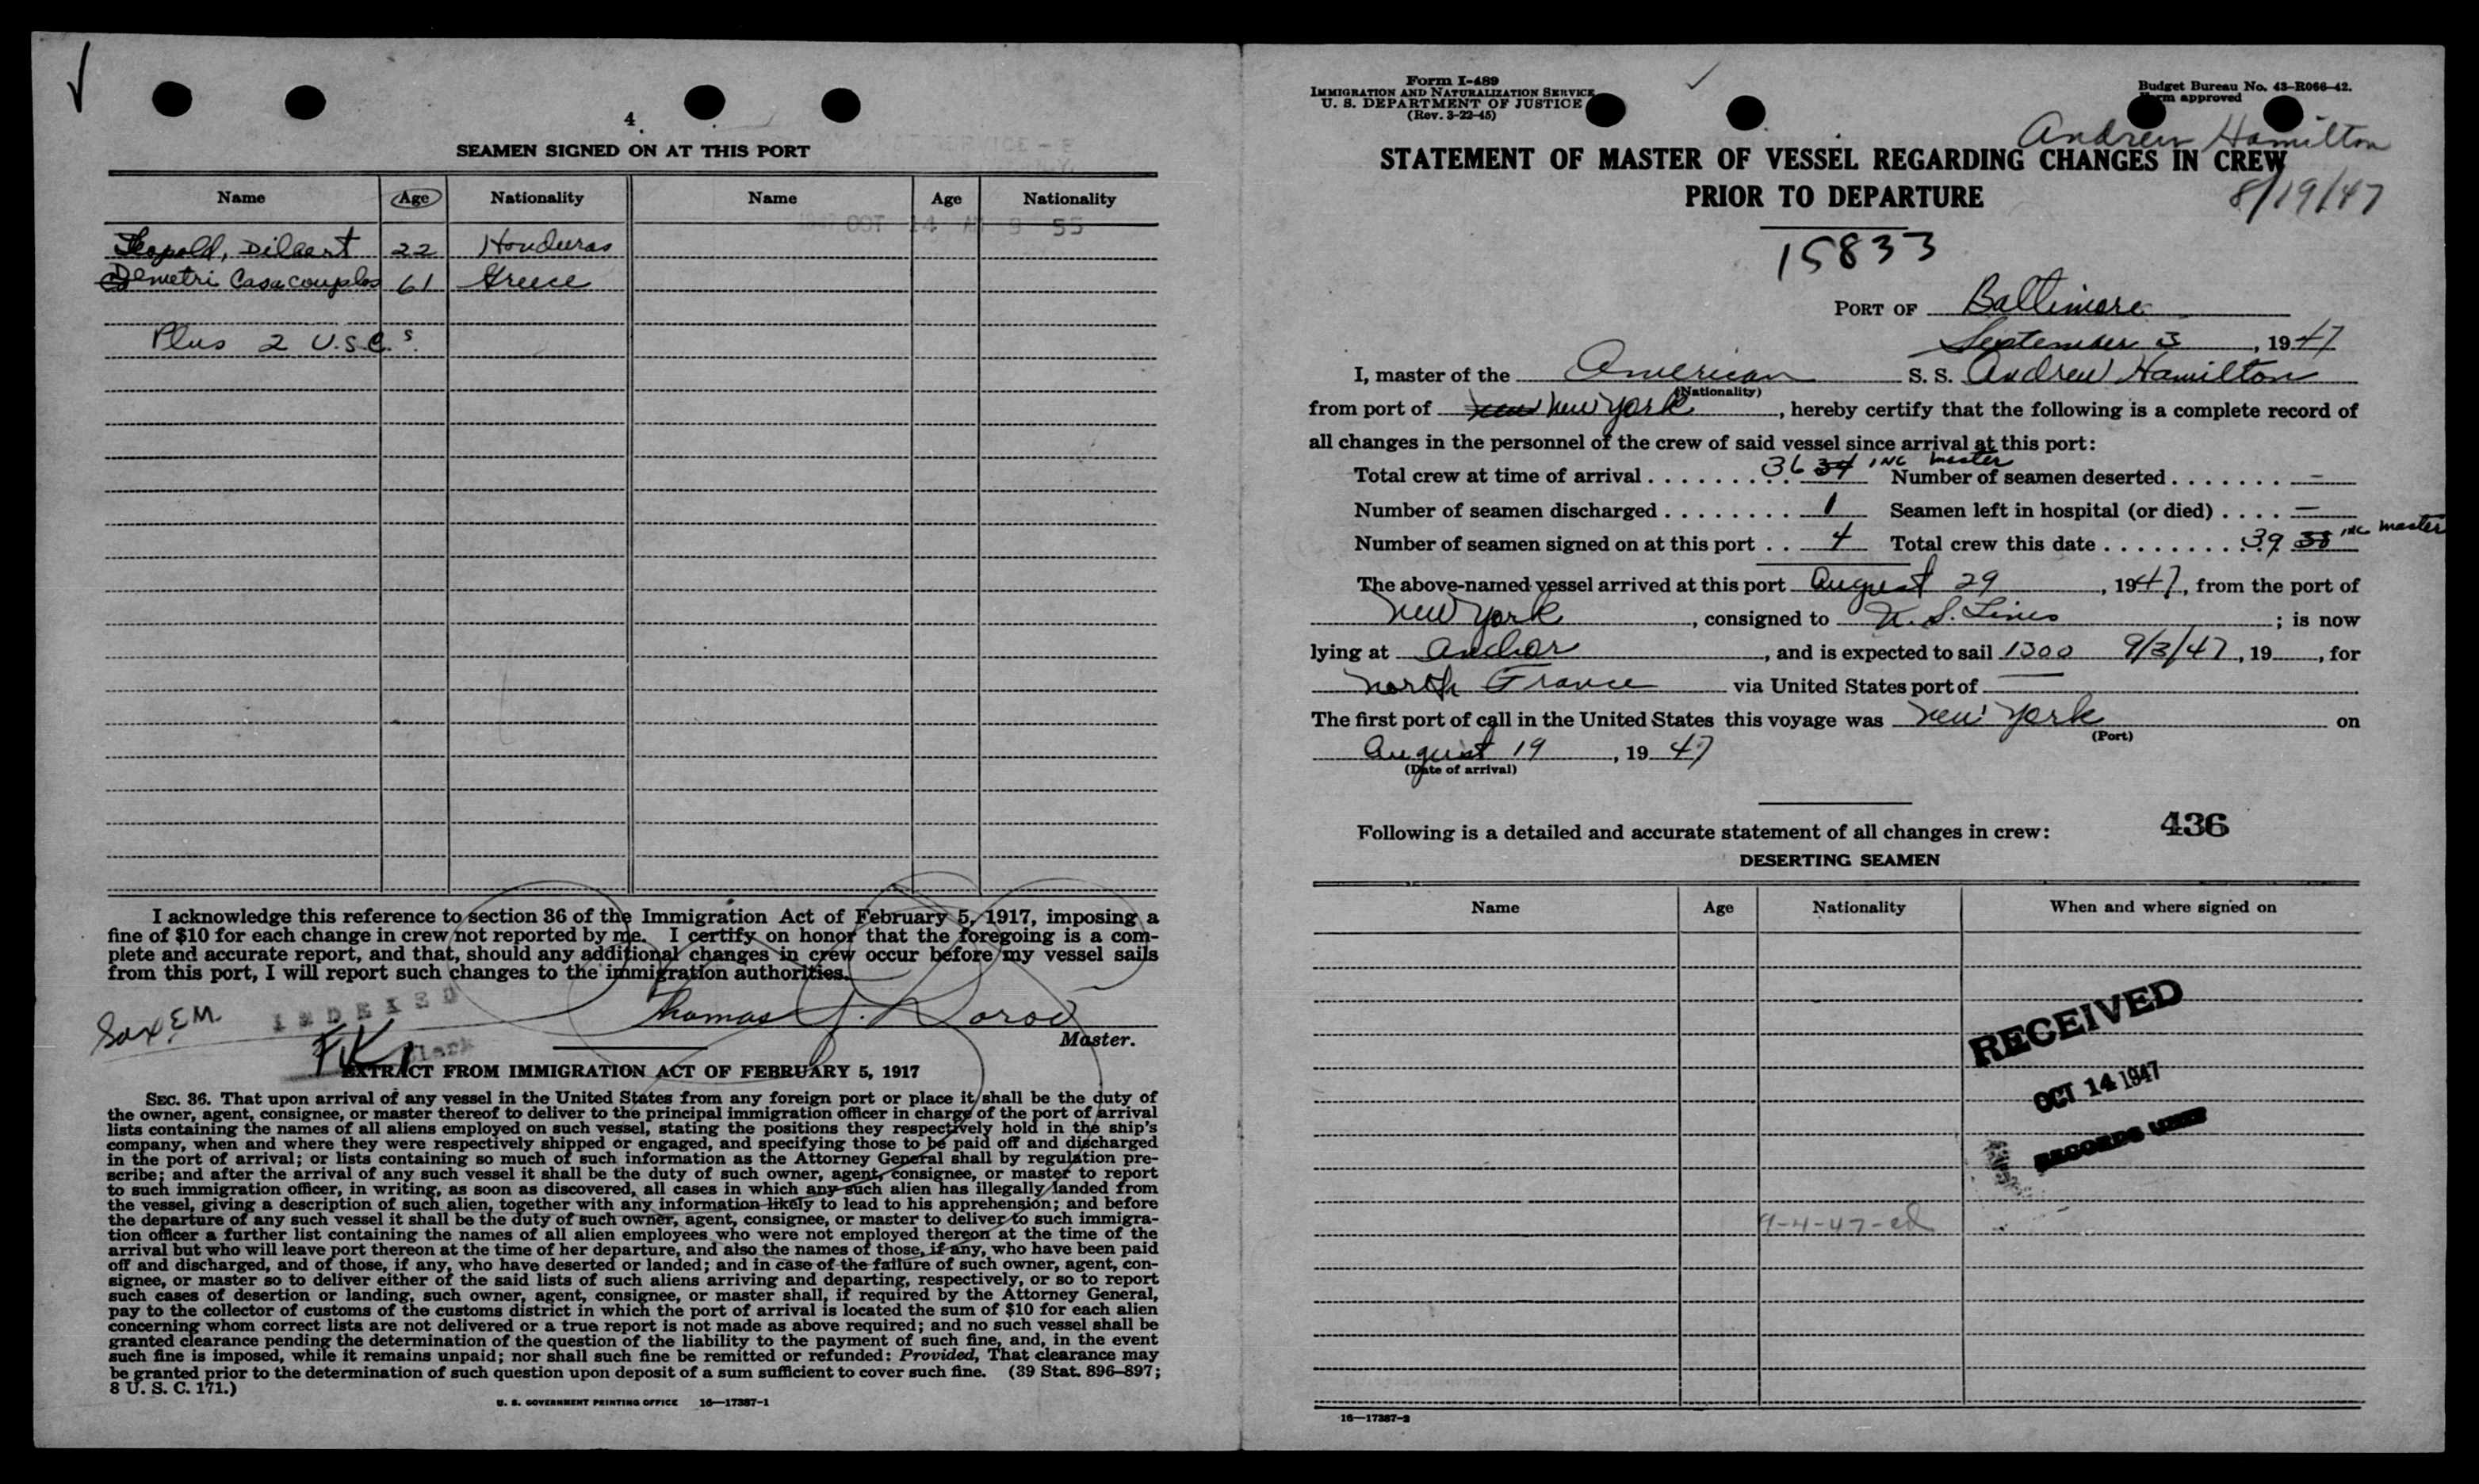 4
SEAMEN SIGNED ON AT THIS PORT
Name Age Nationality Name Age Nationality
OCT 14 AM 9 55
Leopold, Dilbert 22 Honduras
Demetri Casacouplos 61 Greece
Plus 2 U.S.C.s.
I acknowledge this reference to section 36 of the Immigration Act of February 5, 1917, imposing a
fine of $10 for each change in crew not reported by me. I certify on honor that the foregoing is a com-
plete and accurate report, and that, should any additional changes in crew occur before my vessel sails
from this port, I will report such changes to the immigration authorities.
INDEXED
Thomas J.
Clerk
Master.
EXTRACT FROM IMMIGRATION ACT OF FEBRUARY 5, 1917
SEC. 36. That upon arrival of any vessel in the United States from any foreign port or place it shall be the duty of
the owner, agent, consignee, or master thereof to deliver to the principal immigration officer in charge of the port of arrival
lists containing the names of all aliens employed on such vessel, stating the positions they respectively hold in the ship's
company, when and where they were respectively shipped or engaged, and specifying those to be paid off and discharged
in the port of arrival; or lists containing so much of such information as the Attorney General shall by regulation pre-
scribe; and after the arrival of any such vessel it shall be the duty of such owner, agent, consignee, or master to report
to such immigration officer, in writing, as soon as discovered, all cases in which any such alien has illegally landed from
the vessel, giving a description of such alien, together with any information likely to lead to his apprehension; and before
the departure of any such vessel it shall be the duty of such owner, agent, consignee, or master to deliver to such immigra-
tion officer a further list containing the names of all alien employees who were not employed thereon at the time of the
arrival but who will leave port thereon at the time of her departure, and also the names of those, if any, who have been paid
off and discharged, and of those, if any, who have deserted or landed; and in case of the failure of such owner, agent, con-
signee, or master so to deliver either of the said lists of such aliens arriving and departing, respectively, or so to report
such cases of desertion or landing, such owner, agent, consignee, or master shall, if required by the Attorney General,
pay to the collector of customs of the customs district in which the port of arrival is located the sum of $10 for each alien
concerning whom correct lists are not delivered or a true report is not made as above required; and no such vessel shall be
granted clearance pending the determination of the question of the liability to the payment of such fine, and, in the event
such fine is imposed, while it remains unpaid; nor shall such fine be remitted or refunded: Provided, That clearance may
be granted prior to the determination of such question upon deposit of a sum sufficient to cover such fine. (39 Stat. 896–897;
8 U. S. C. 171.)
U. S. GOVERNMENT PRINTING OFFICE 16—17387-1
Form I-489
IMMIGRATION AND NATURALIZATION SERVICE
U. S. DEPARTMENT OF JUSTICE
(Rev. 3-22-45)
Budget Bureau No. 43-R066-42.
Form approved
Andrew Hamilton
STATEMENT OF MASTER OF VESSEL REGARDING CHANGES IN CREW
PRIOR TO DEPARTURE
8/19/47
15833
PORT OF Baltimore
September 3, 1947
I, master of the American S. S. Andrew Hamilton
(Nationality)
from port of New York, hereby certify that the following is a complete record of
all changes in the personnel of the crew of said vessel since arrival at this port:
Total crew at time of arrival 36 34 INC master Number of seamen deserted –
Number of seamen discharged 1 Seamen left in hospital (or died) –
Number of seamen signed on at this port 4 Total crew this date 39 38 INC master
The above-named vessel arrived at this port August 29, 1947, from the port of
New York, consigned to U. S. Lines; is now
lying at Anchor, and is expected to sail 1300 9/3/47, 19, for
North France via United States port of —
The first port of call in the United States this voyage was New York on
(Port)
August 19, 1947
(Date of arrival)
Following is a detailed and accurate statement of all changes in crew: 436
DESERTING SEAMEN
Name Age Nationality When and where signed on
RECEIVED
OCT 14 1947
RECORDS UNIT
9-4-47-ed
16—17387-2